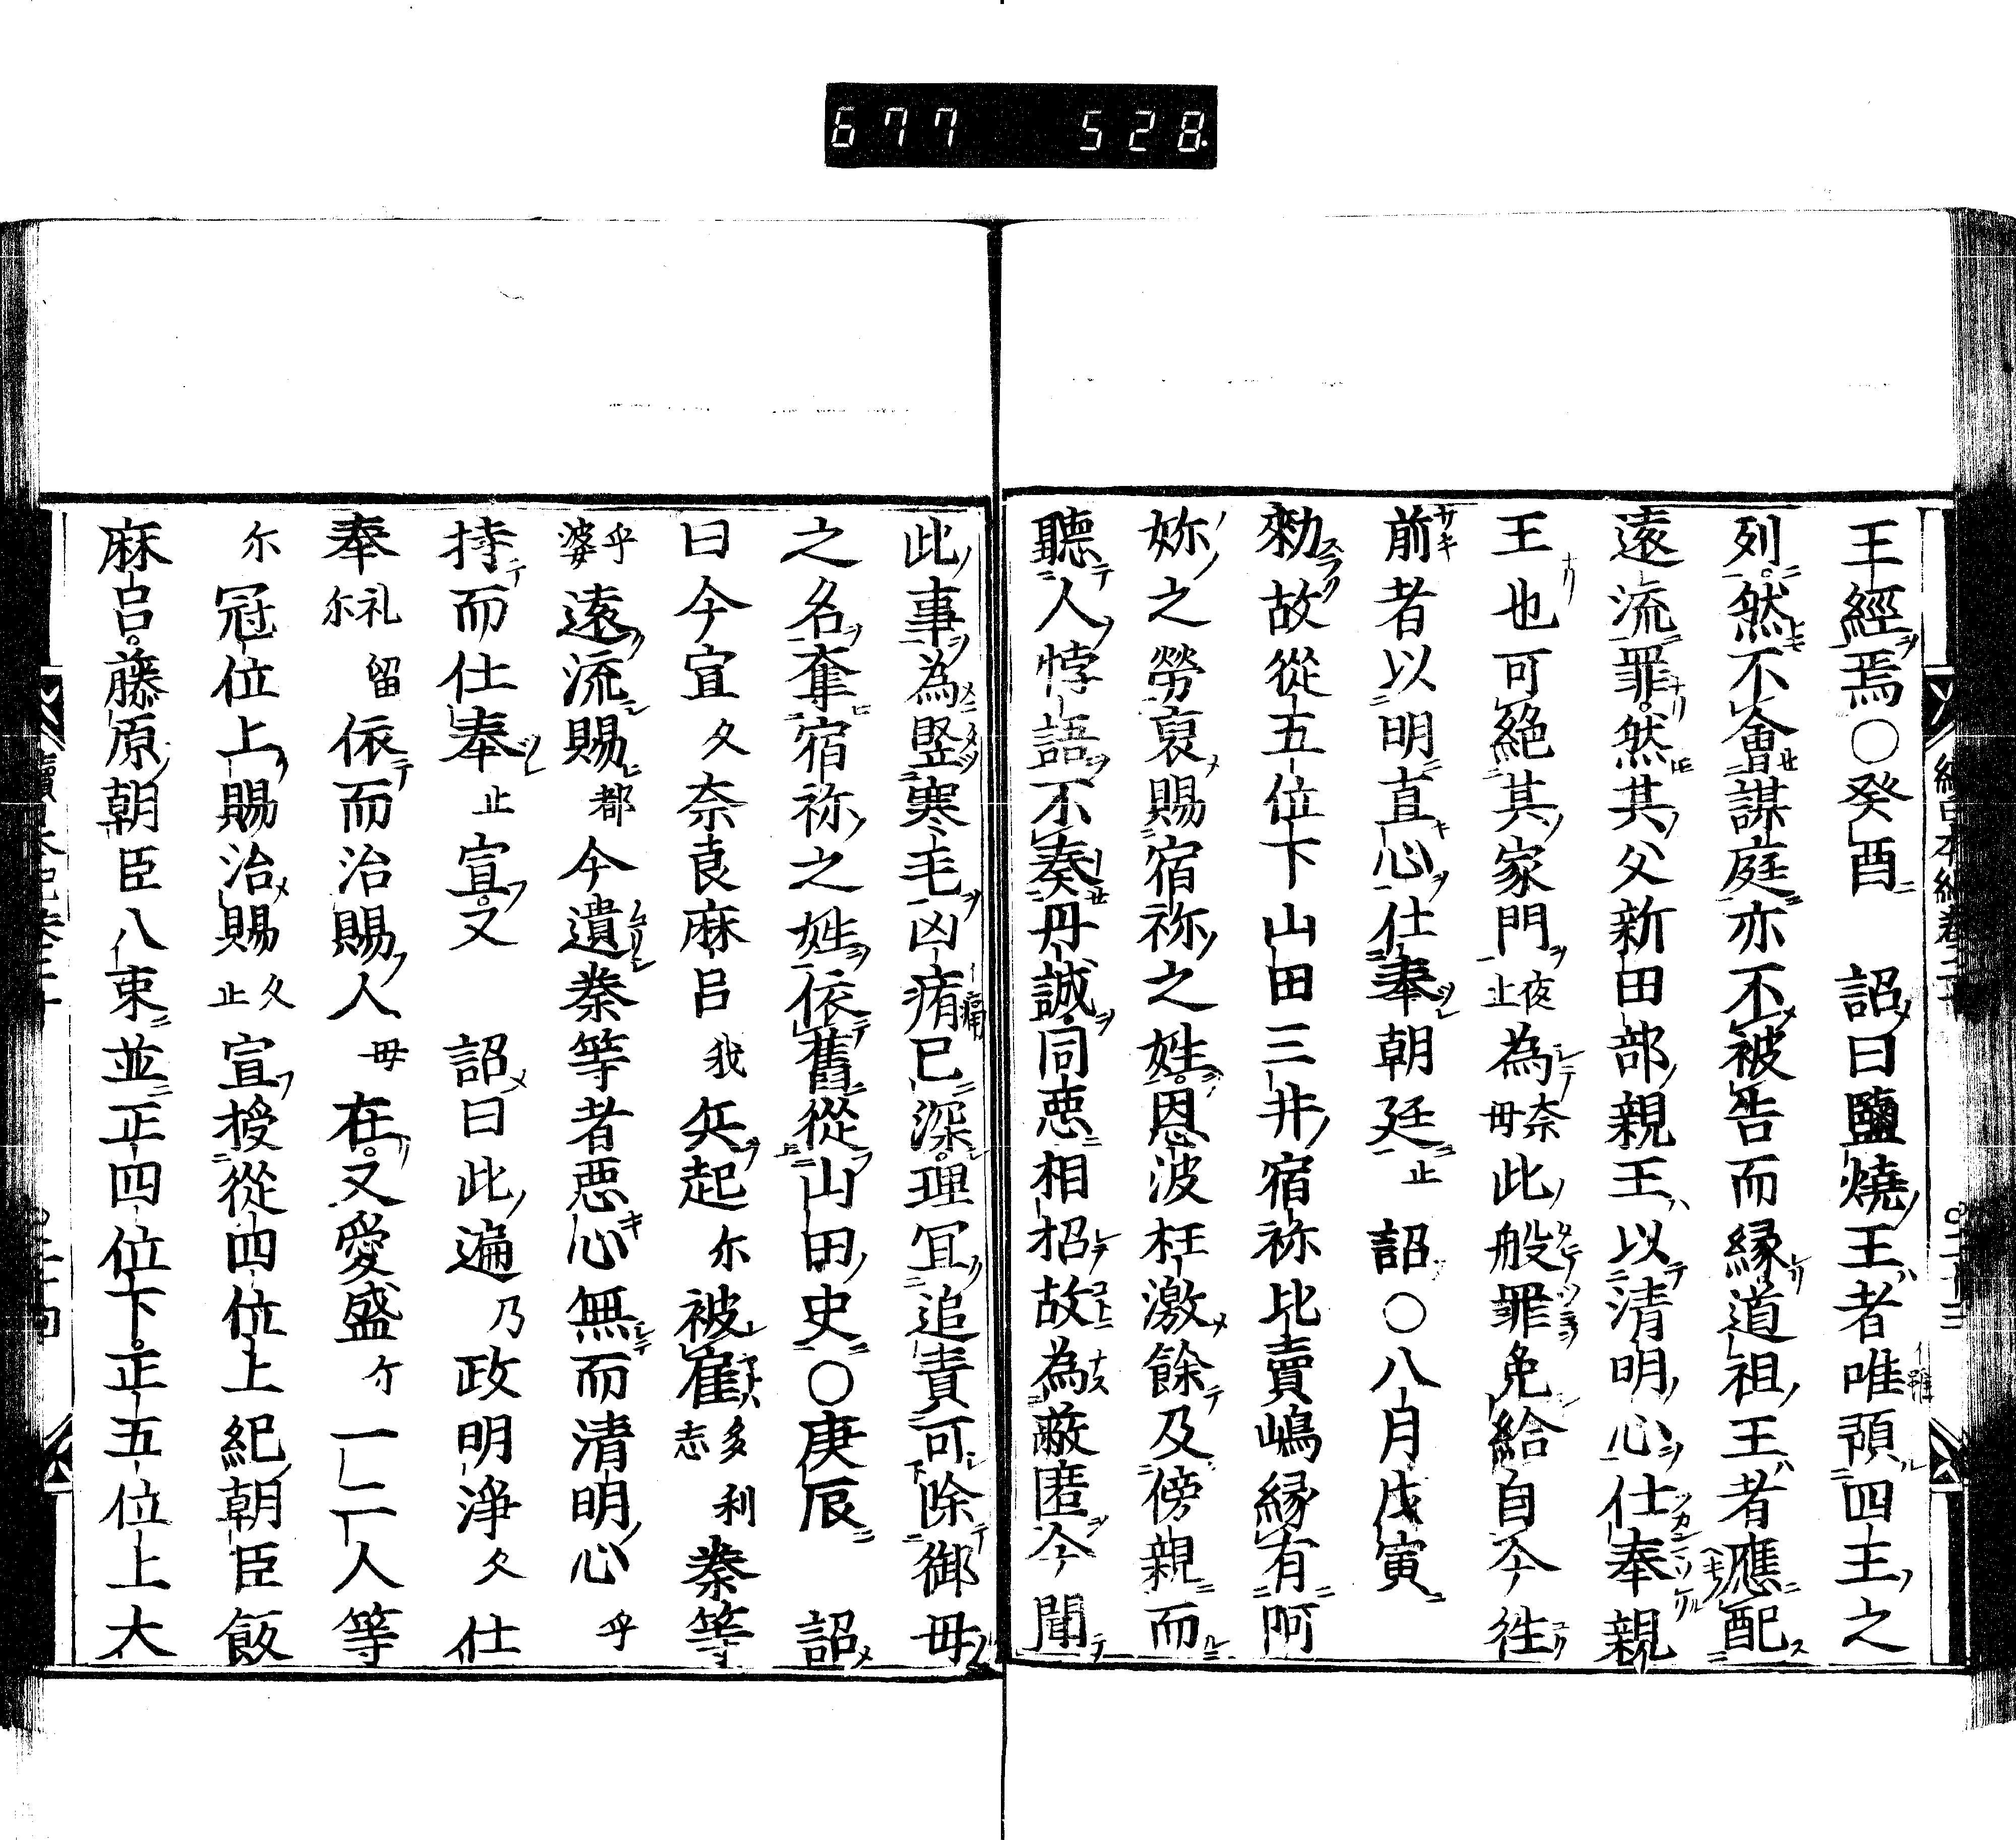 677 528
王經焉〇癸酉 詔曰鹽燒王者唯預四王之
列然不會謀庭亦不被告而縁道祖王者應配
遠流罪然其父新田部親王以清明心仕奉親
王也可絶其家門夜止為奈毋此般罪免給自今徃
前者以明直心仕奉朝廷止 詔〇八月戊寅
勑故從五位下山田三井宿祢比賣嶋縁有阿
妳之勞裒賜宿祢之姓恩波枉激餘及傍親而
聽人悖語不奏丹誠同悪相招故為蔽匿今聞
此事為竪寒毛凶痏已深理冝追責可除御毋
之名奪宿祢之姓依舊從山田史〇庚辰 詔
曰今宣久奈良麻呂我兵起尓被雇多志利秦等
乎婆遠流賜都今遺秦等者悪心無而清明心乎
持而仕奉止宣又 詔曰此遍乃政明浄久仕
奉礼尓留依而治賜人毋在又愛盛尓一二人等
尓冠位上賜治賜久止宣授從四位上紀朝臣飯
麻呂藤原朝臣八束並正四位下正五位上大